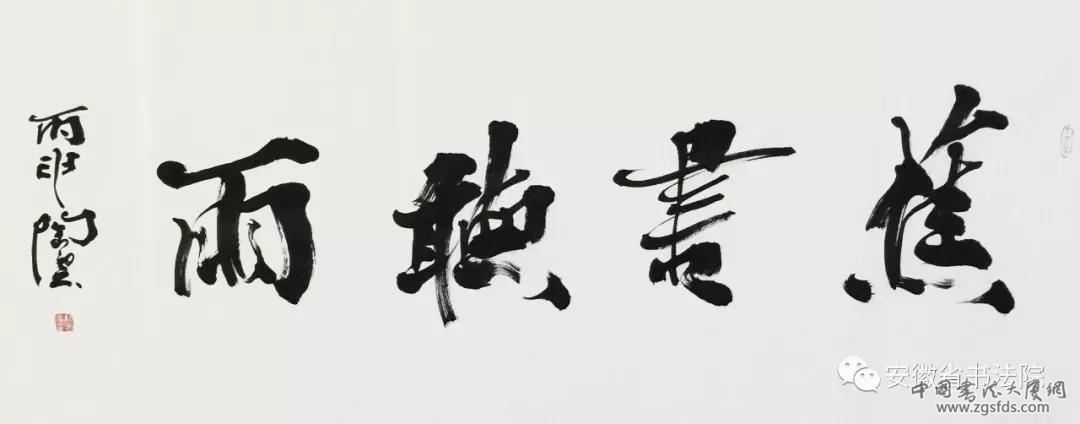 蕉書聽雨
陶
安徽省书法院
中國書法大廈網
www.zgsfds.com